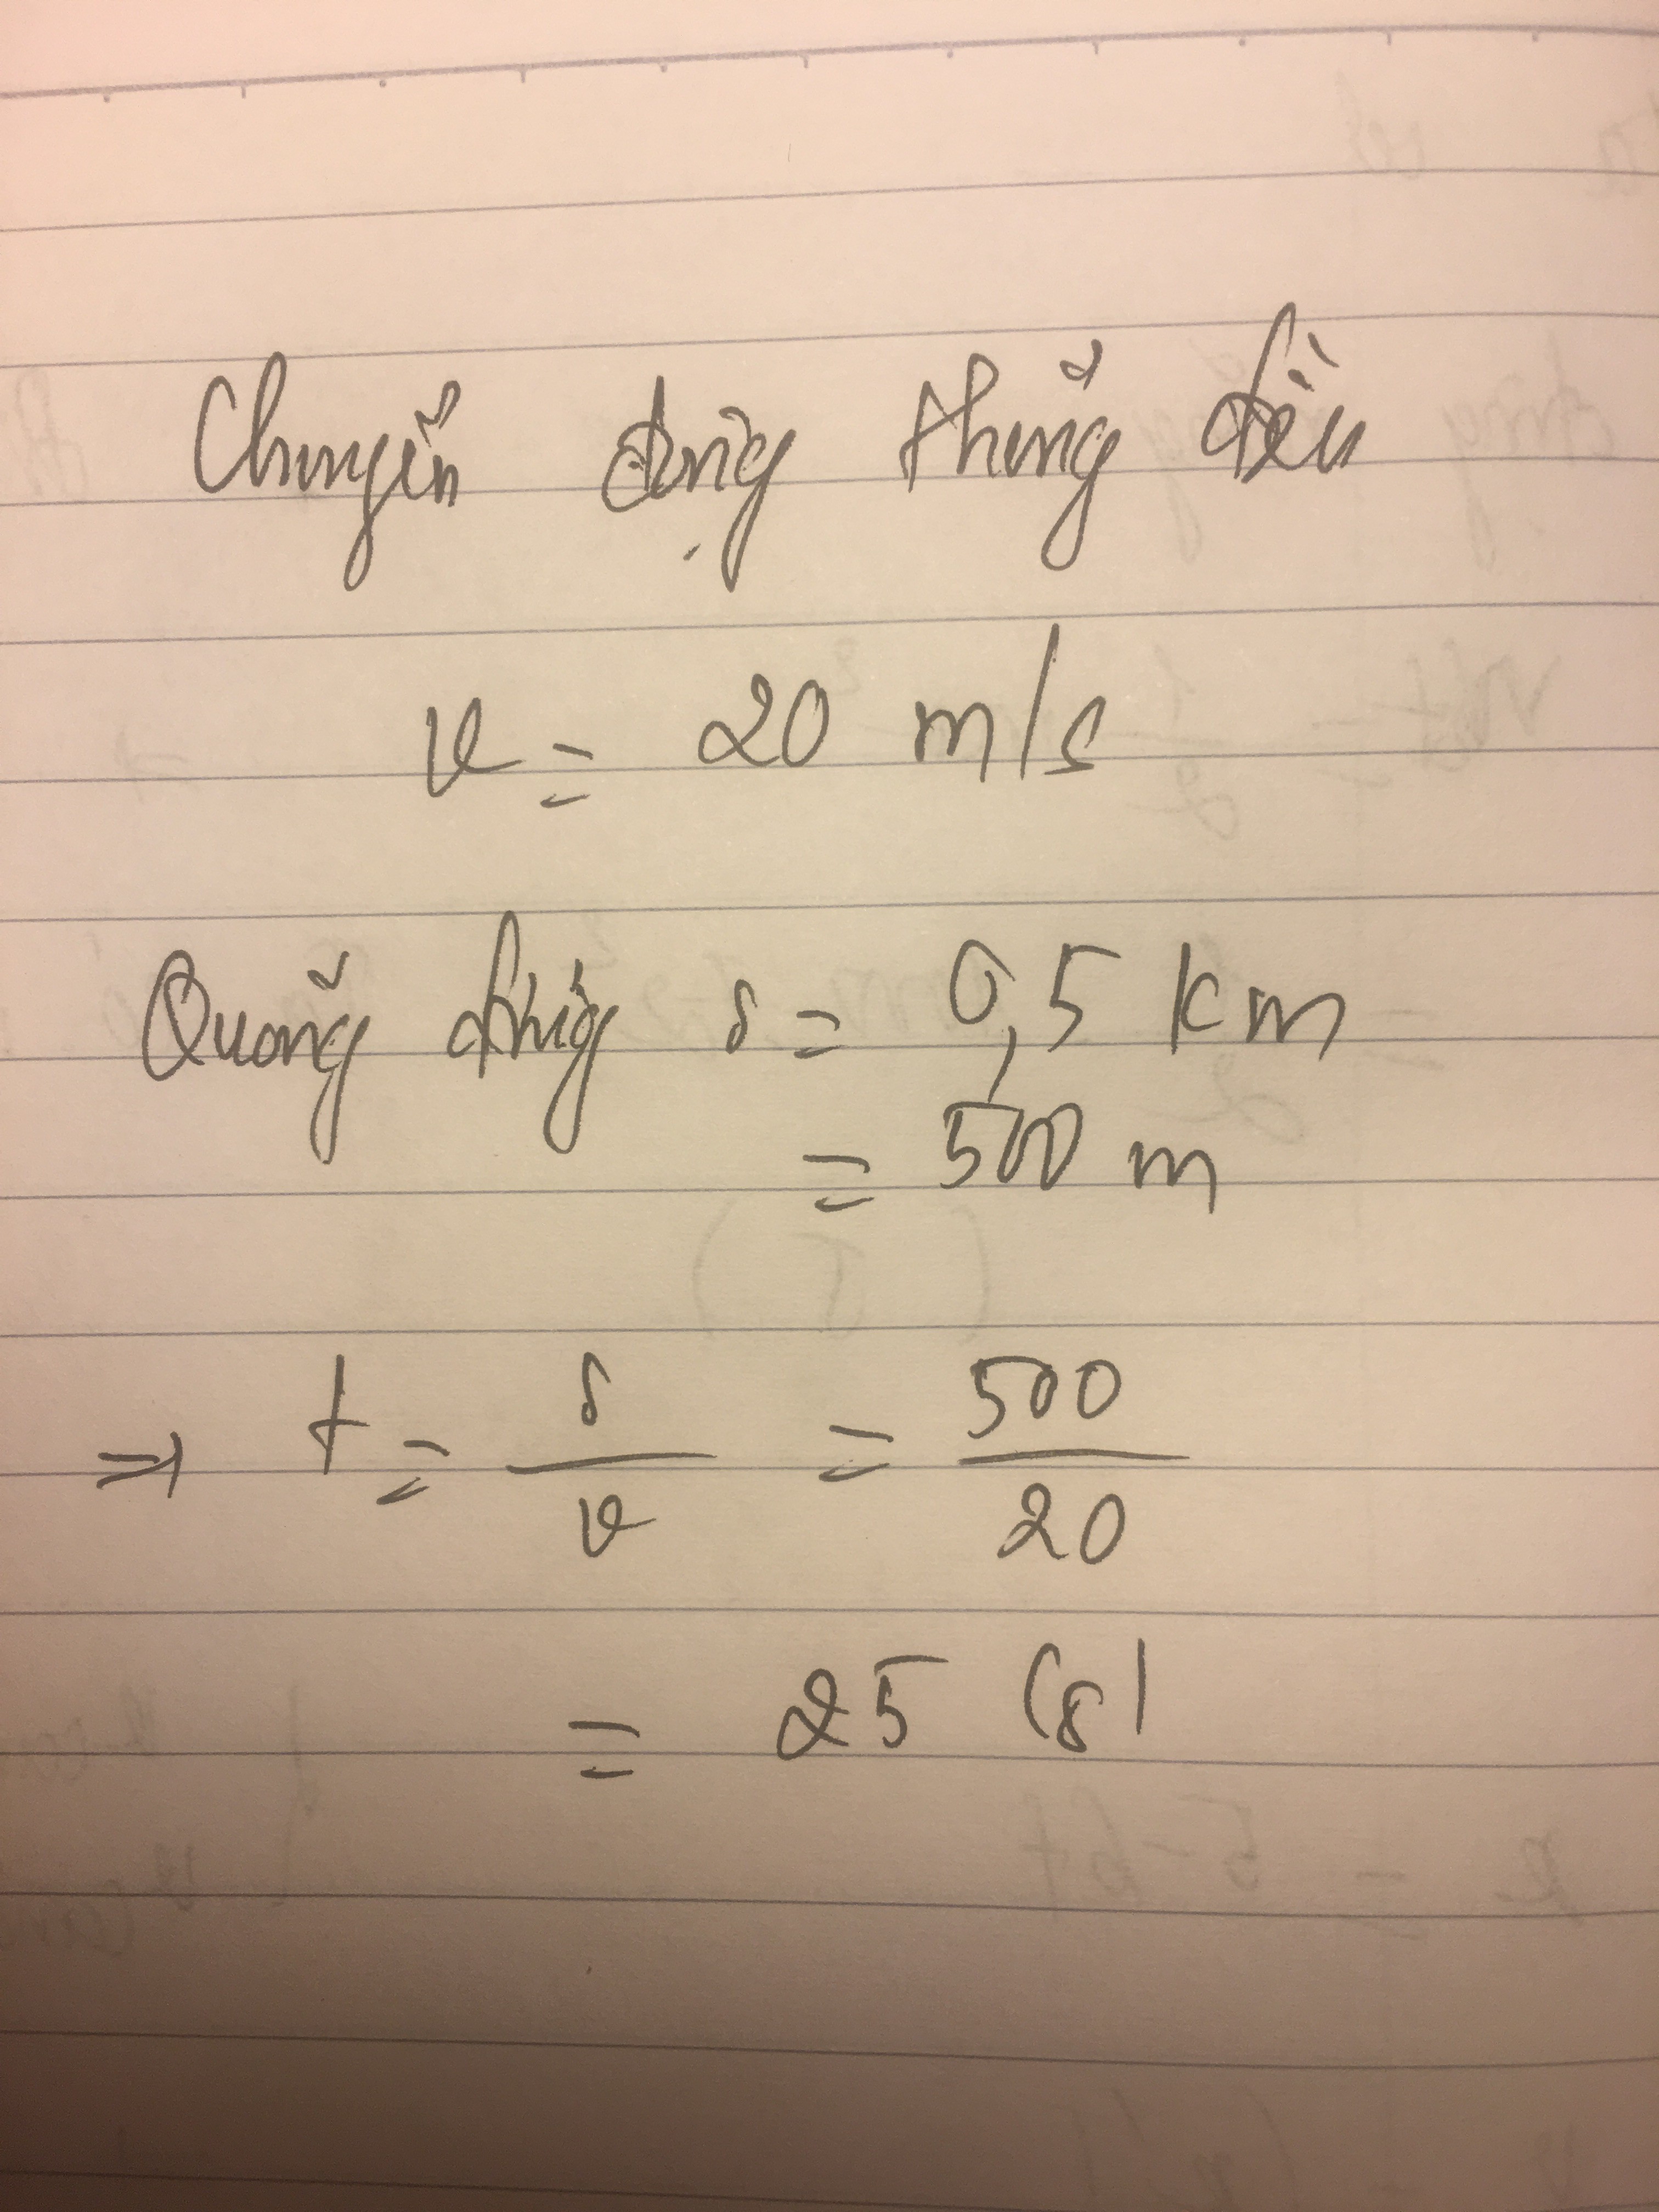 Chuyển động thẳng đều
v = 20 m/s
Quãng đường s = 0,5 km
= 500 m
=> t = s/v = 500/20
= 25 (s)